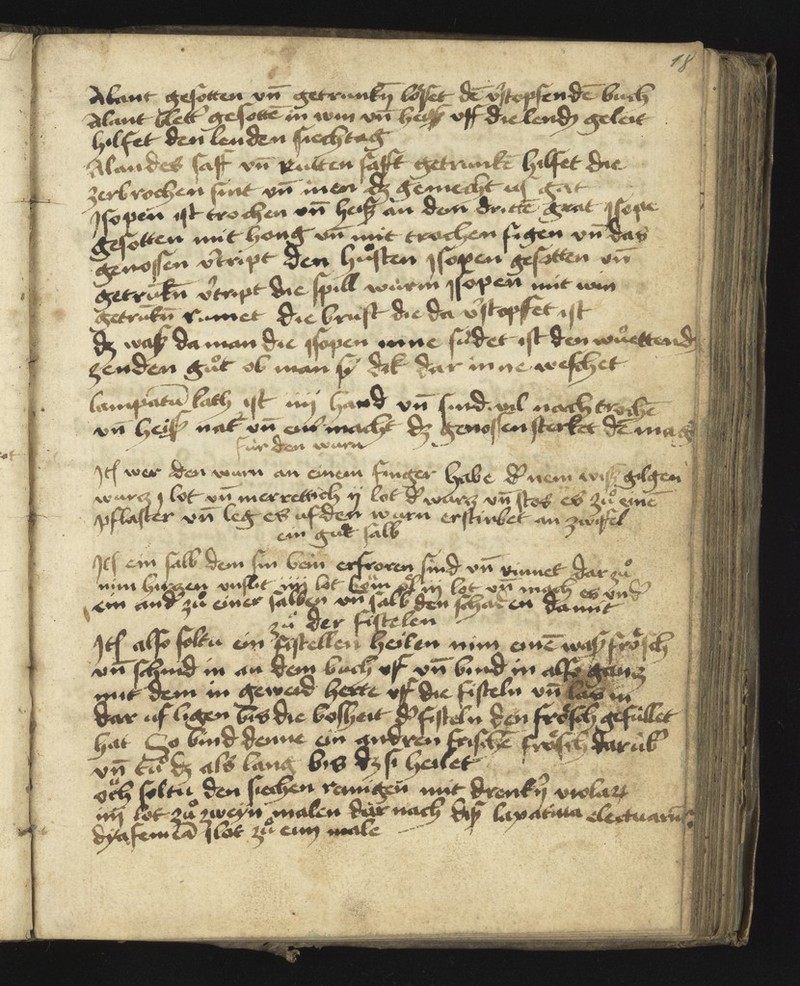 18
Alant gesotten vn̄ getrunkn̄ löset dē v̓stopfendē buch
Alant blett̓ gesottē in win vn̄ heiß vff die lendn̄ geleit
hilfet den lenden siechtag
Alandes saff vn̄ Rutten safft getrunkē hilfet die
zerbrochen sint vn̄ inen dz gemecht us gat
Isopen ist trochen vn̄ heiß an dem drittē grat Isope
gesotten mit hong vn̄ mit trochen figen vn̄ das
genossen v̓tript den huͦsten Isopen gesotten vn̄
getrukn̄ v̓tript die spill wurm Isopen mit win
getrukn̄ rumet die brust die da v̓stopfet ist
dz wasß da man die Isopen inne südet ist den wuͤettendn̄
zenden guͦt ob man sÿ dik dar inne weschet
lampatū lath ist iiij hand vn̄ sind vil nach trochē
vn̄ heiß nat̓ vn̄ ein macht dz genossen sterket dē mag
für den wurn
Itē wer den wurn an einem finger habe d̓ nem wiß gilgen
wurtz j lot vn̄ merrettich ij lot d̓ wurtz vn̄ stos es zuͦ einē
pflaster vn̄ leg es uf den wurn erstirbet an zwiffel
ein guͦt salb
Itē ein salb dem sin bein erfroren sind vn̄ rinnet dar zuͦ
nim hirzzen unslit iiij lot bom öl iij lot vn̄ mach es vnd̓
ein and̓ zuͦ einer salben vn̄ salb den schaden damit
zuͦ der fistelen
Itē also soltu ein fistellen heilen nim einē wasß frösch
vn̄ schnid in an dem buch uf vn̄ bind in also gantz
mit dem in geweid herte vff die fisteln vn̄ las in
dar uf ligen bis die bosheit d̓ fisteln den frösch gefüllet
hat So bind denne ein andren frischē frösch darüb̓
vn̄ tuͦ dz als lang bis dz si heilet
och soltu den siechen reinigen mit drenkn̄ violatz
iiij lot zuͦ zweyn malen dar nach diß laxatiua electuariū
dyafenicū j lot zuͦ eim male